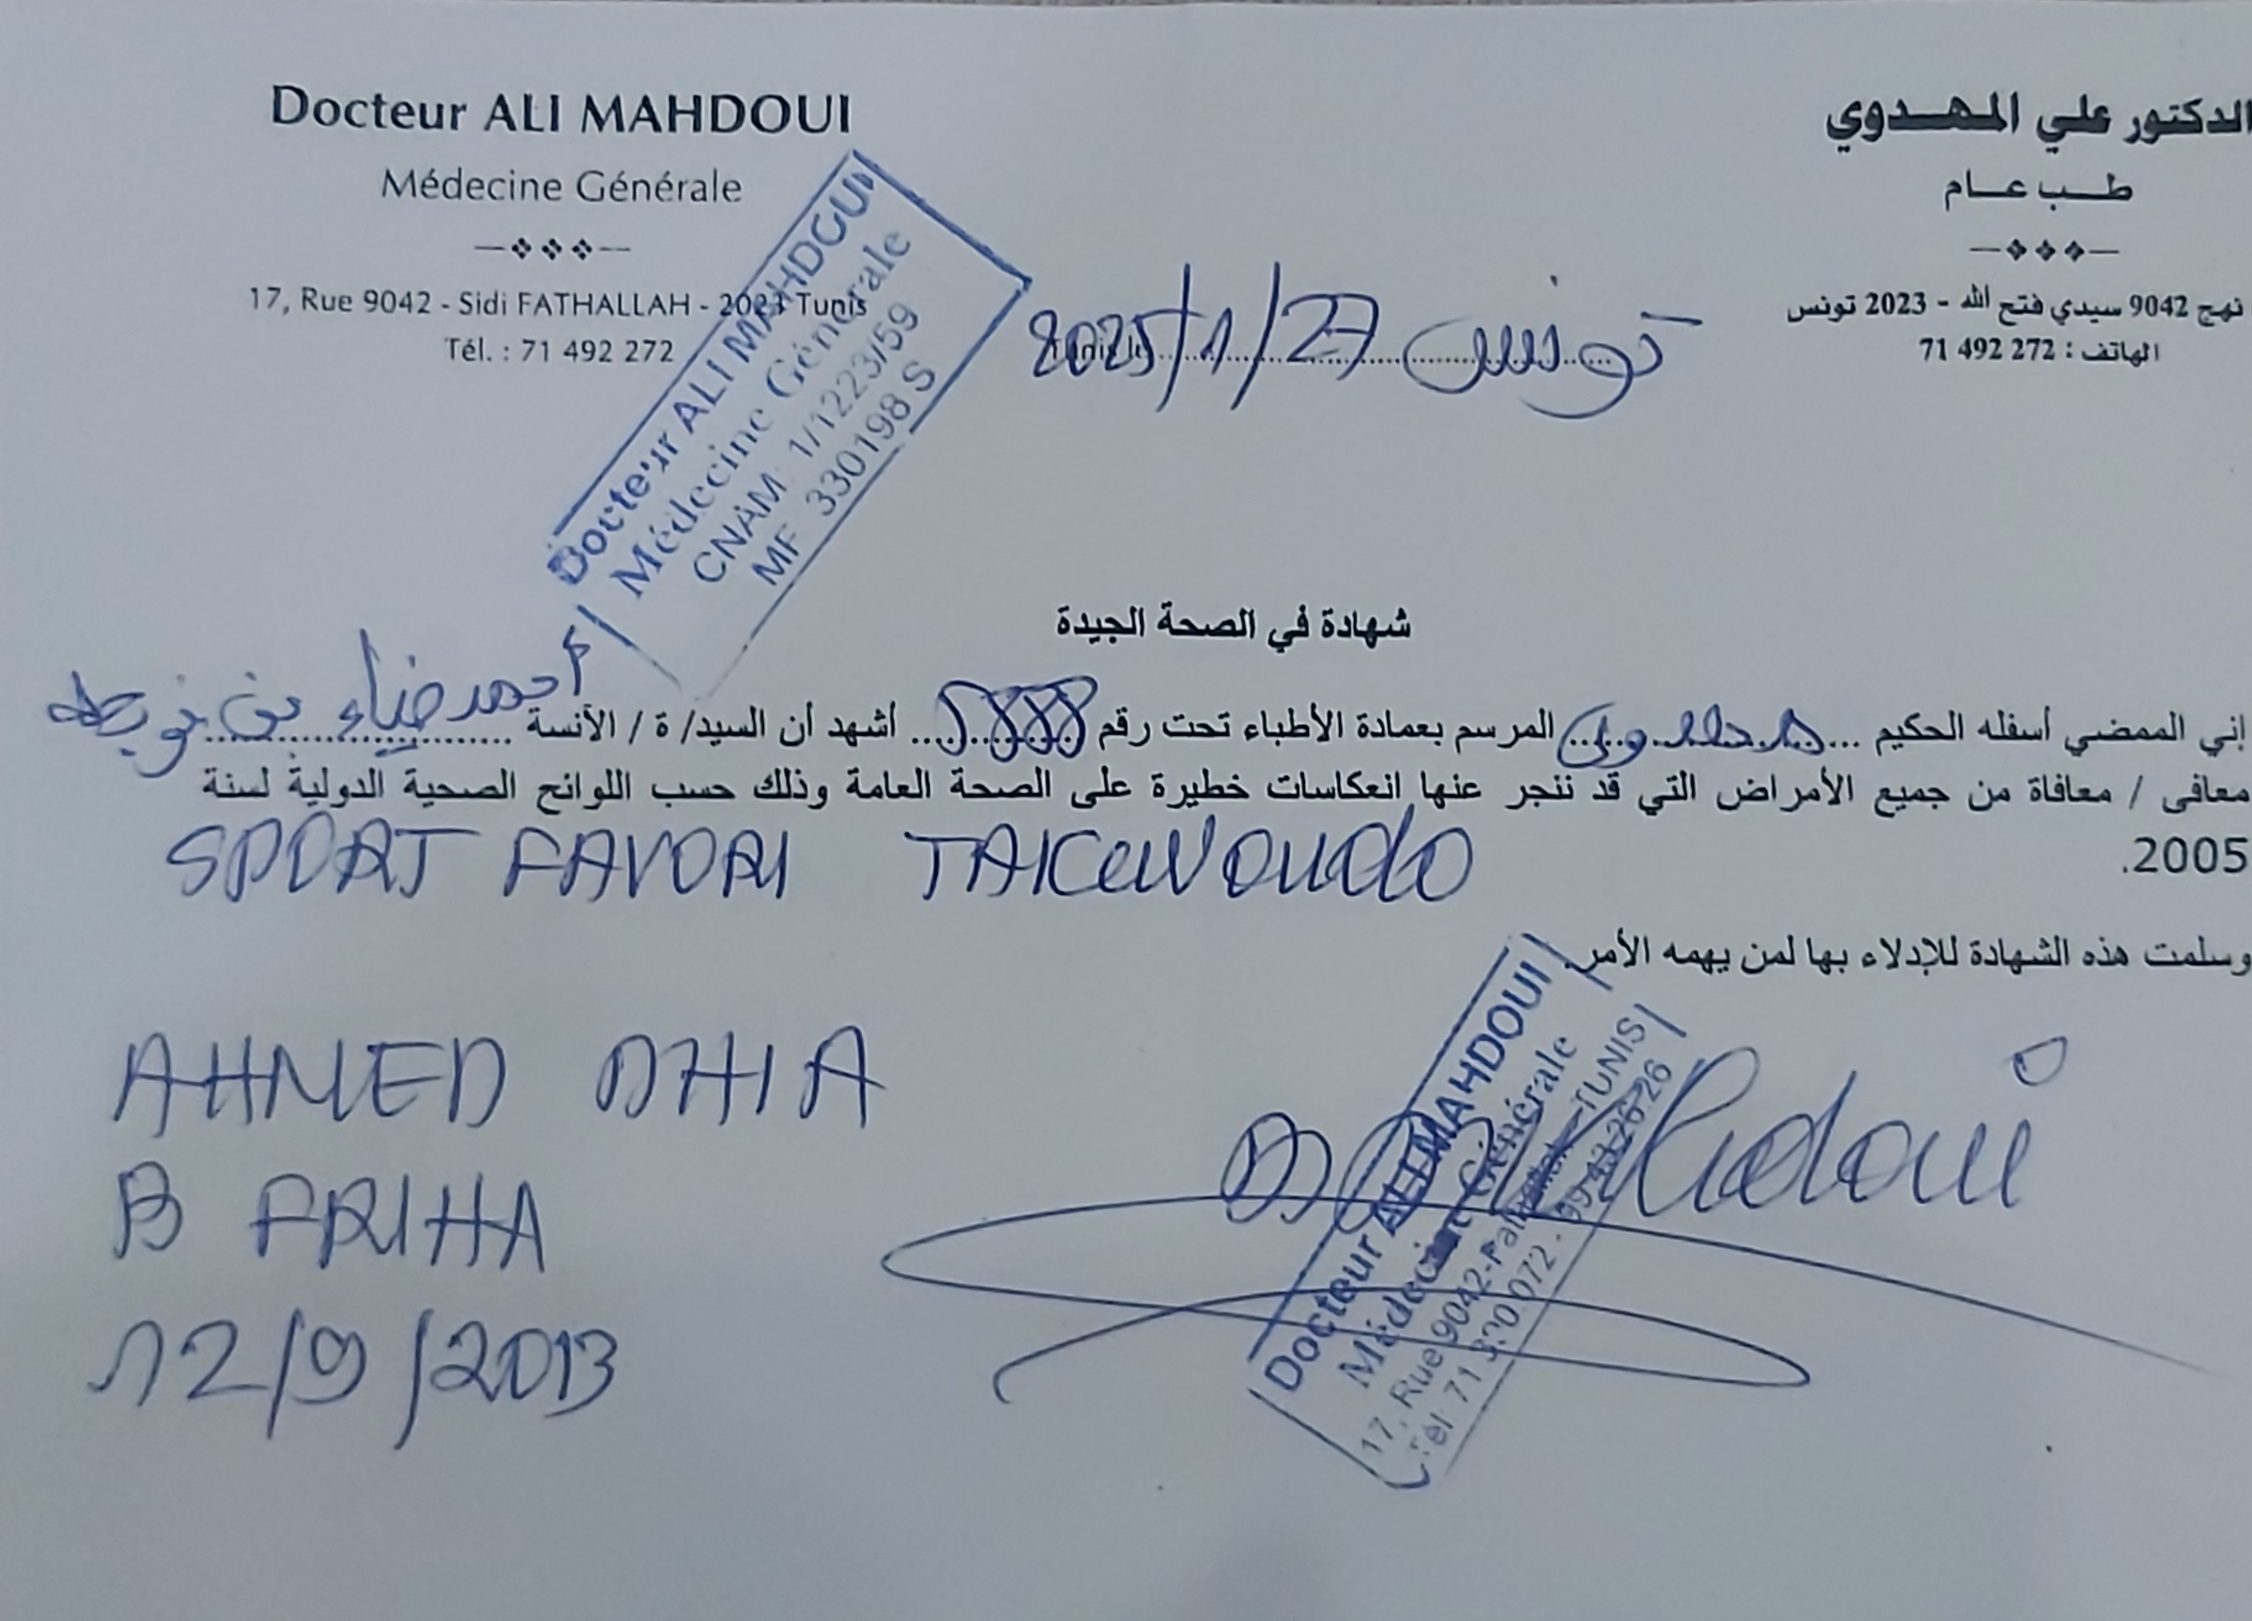 Docteur ALI MAHDOUI
Médecine Générale
17, Rue 9042 - Sidi FATHALLAH - 2023 Tunis
Tél. : 71 492 272
الدكتور علي المهدوي
طب عام
نهج 9042 سيدي فتح الله - 2023 تونس
الهاتف : 272 492 71
تونس 2025/1/27
Docteur ALI MAHDOUI
Médecine Générale
CNAM 1/1223/59
MF 330198 S
شهادة في الصحة الجيدة
إني الممضي أسفله الحكيم ... مهدوي المرسم بعمادة الأطباء تحت رقم ... أشهد أن السيد/ ة / الأنسة أحمد ضياء بن فريحة
معافى / معافاة من جميع الأمراض التي قد ننجر عنها انعكاسات خطيرة على الصحة العامة وذلك حسب اللوائح الصحية الدولية لسنة
2005.
SPORT FAVORI TAKEWOUDO
وسلمت هذه الشهادة للإدلاء بها لمن يهمه الأمر.
AHMED DHIA
B FRIHA
12/9/2013
Docteur ALI MAHDOUI
Médecine Générale
17, Rue 9042- TUNIS
Tél 71 390 072 - 99 43 26 26